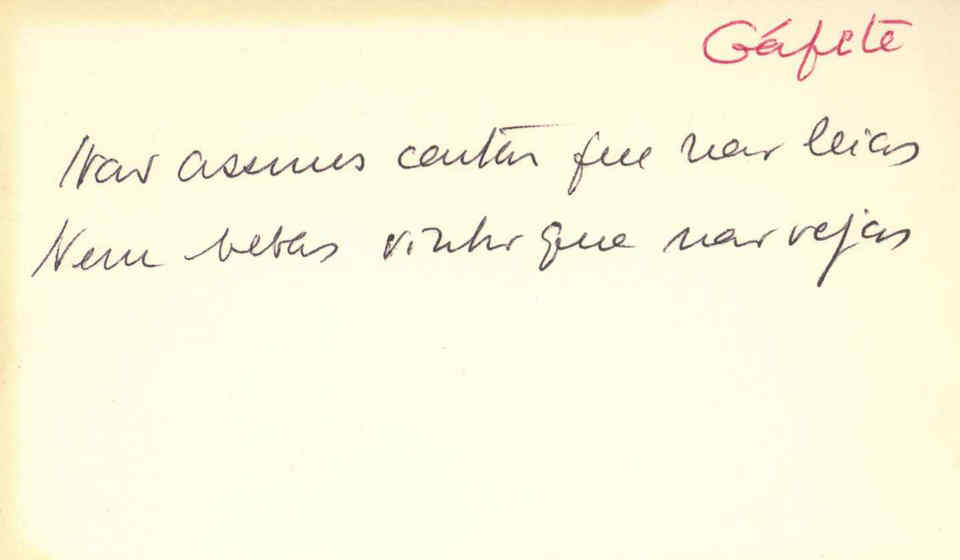 Gáfete
Não assines cartas que não leias
Nem bebas vinho que não vejas